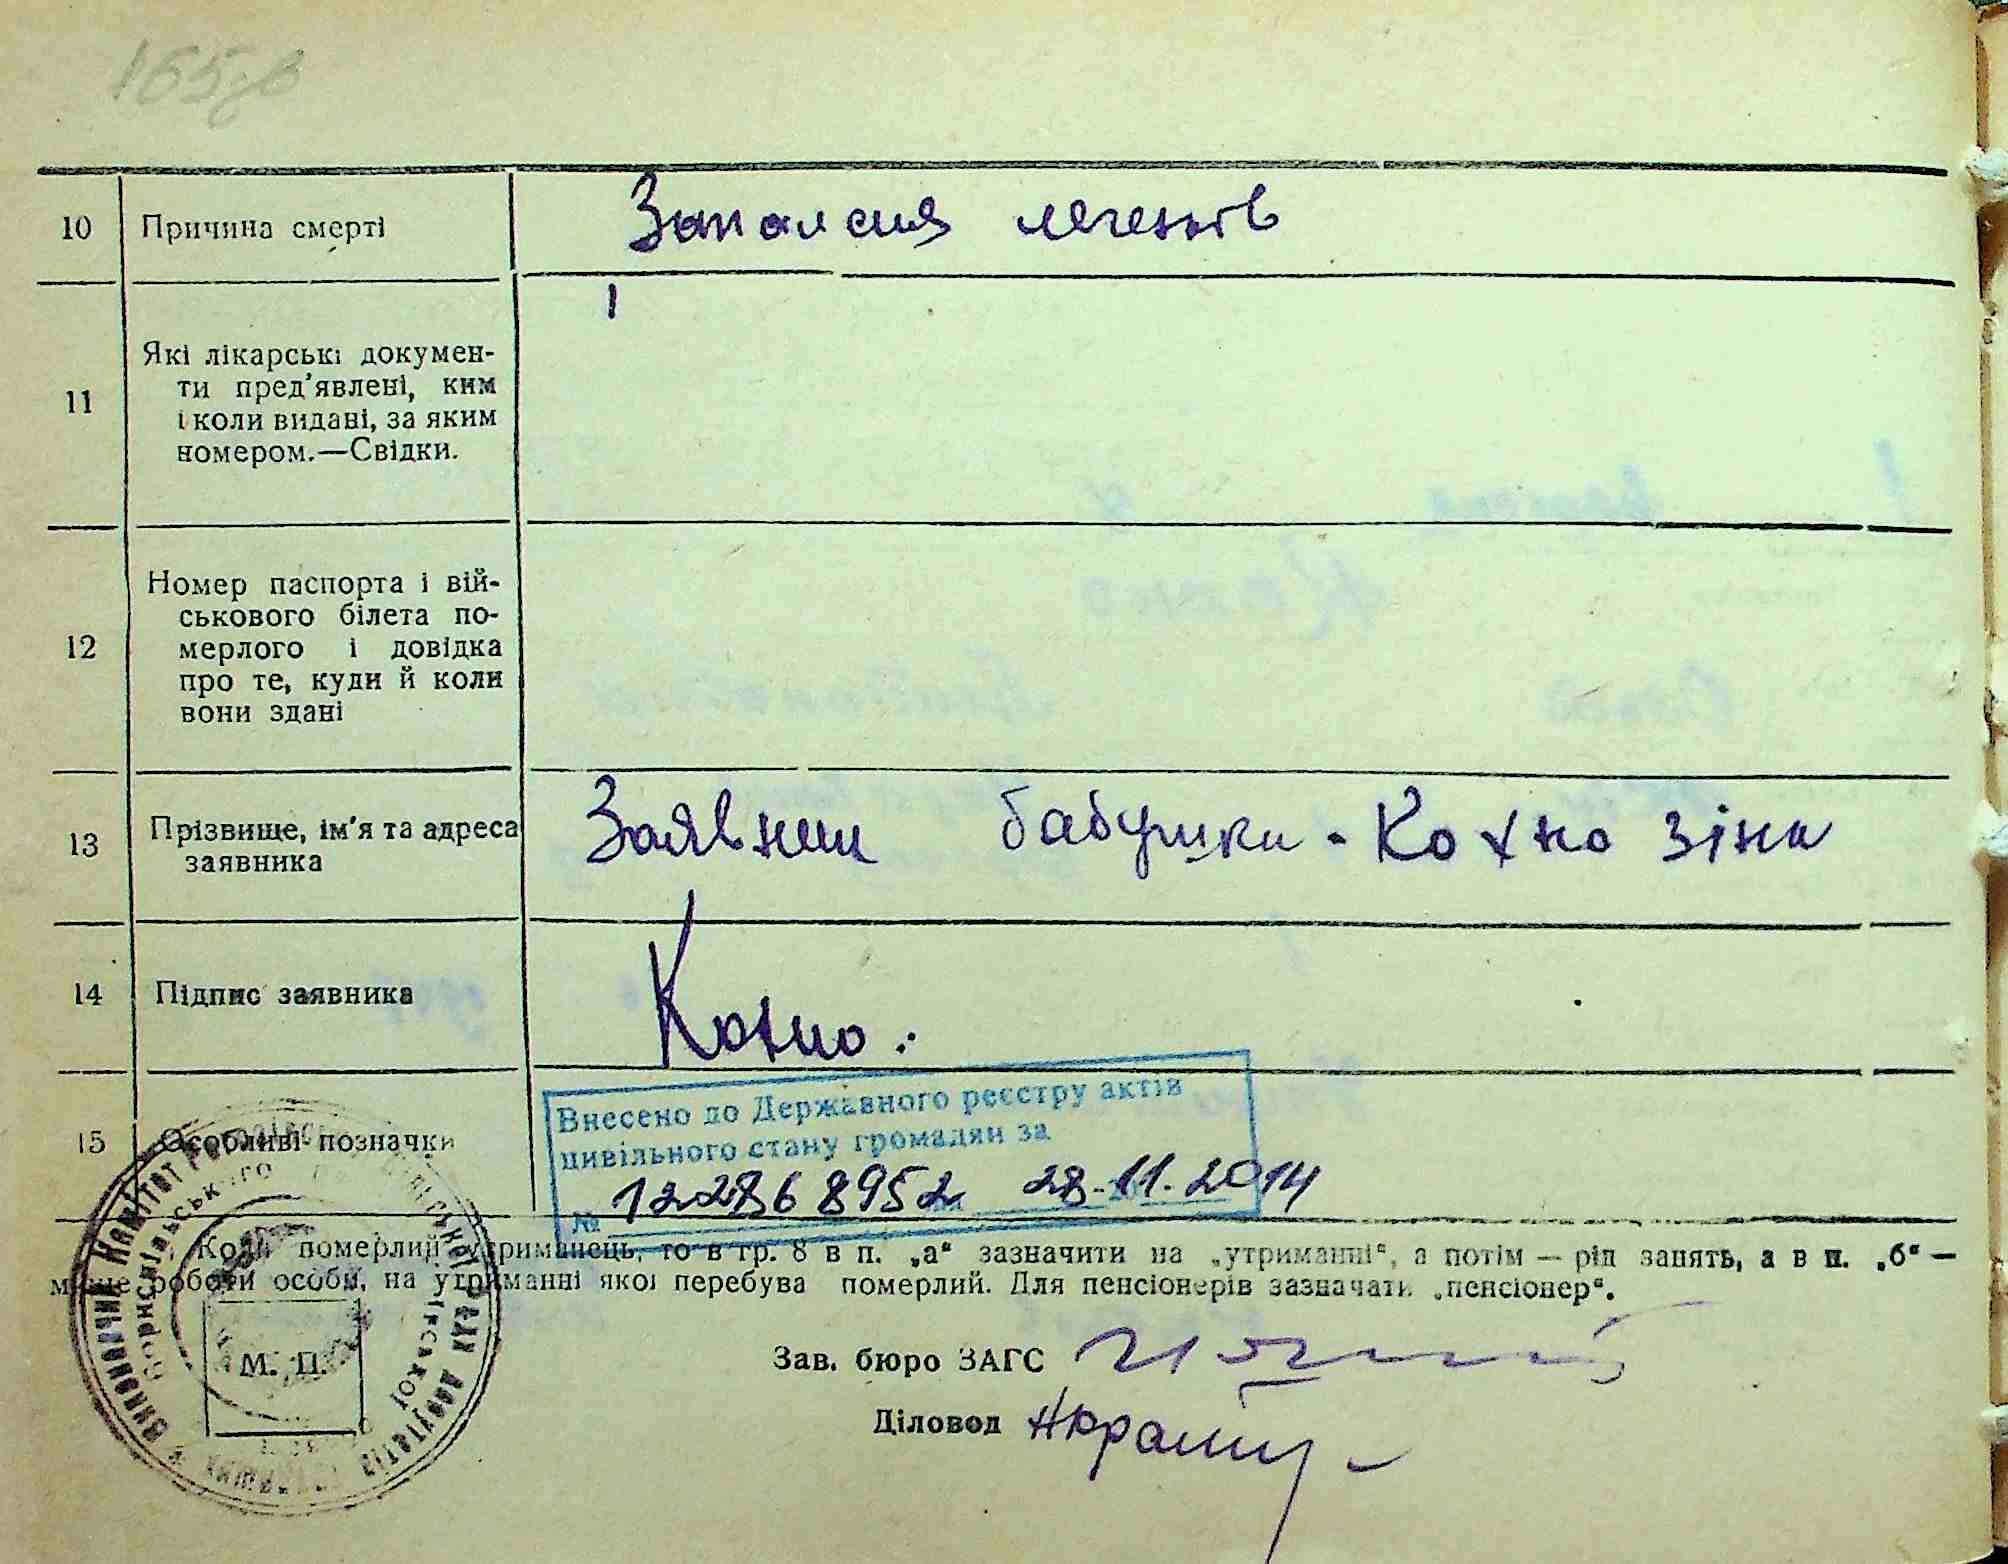 165зв
10 Причина смерті Запаления легенів
11 Які лікарські докумен-
ти пред'явлені, ким
і коли видані, за яким
номером.—Свідки.
12 Номер паспорта і вій-
ськового білета по-
мерлого і довідка
про те, куди й коли
вони здані
13 Прізвище, ім'я та адреса
заявника
Заявниц бабушка - Кохно Зіна
14 Підпис заявника Кохно.
15 Особливі позначки
Внесено до Державного реєстру актів
цивільного стану громадян за
№ 28.11.2014
Коли померлий утриманець, то в гр. 8 в п. „а“ зазначити на „утриманні“, а потім — рід занять, а в п. „б“ —
місце роботи особи, на утриманні якої перебува померлий. Для пенсіонерів зазначати „пенсіонер“.
Зав. бюро ЗАГС
Діловод
М. П.
Виконавчий комітет депутатів